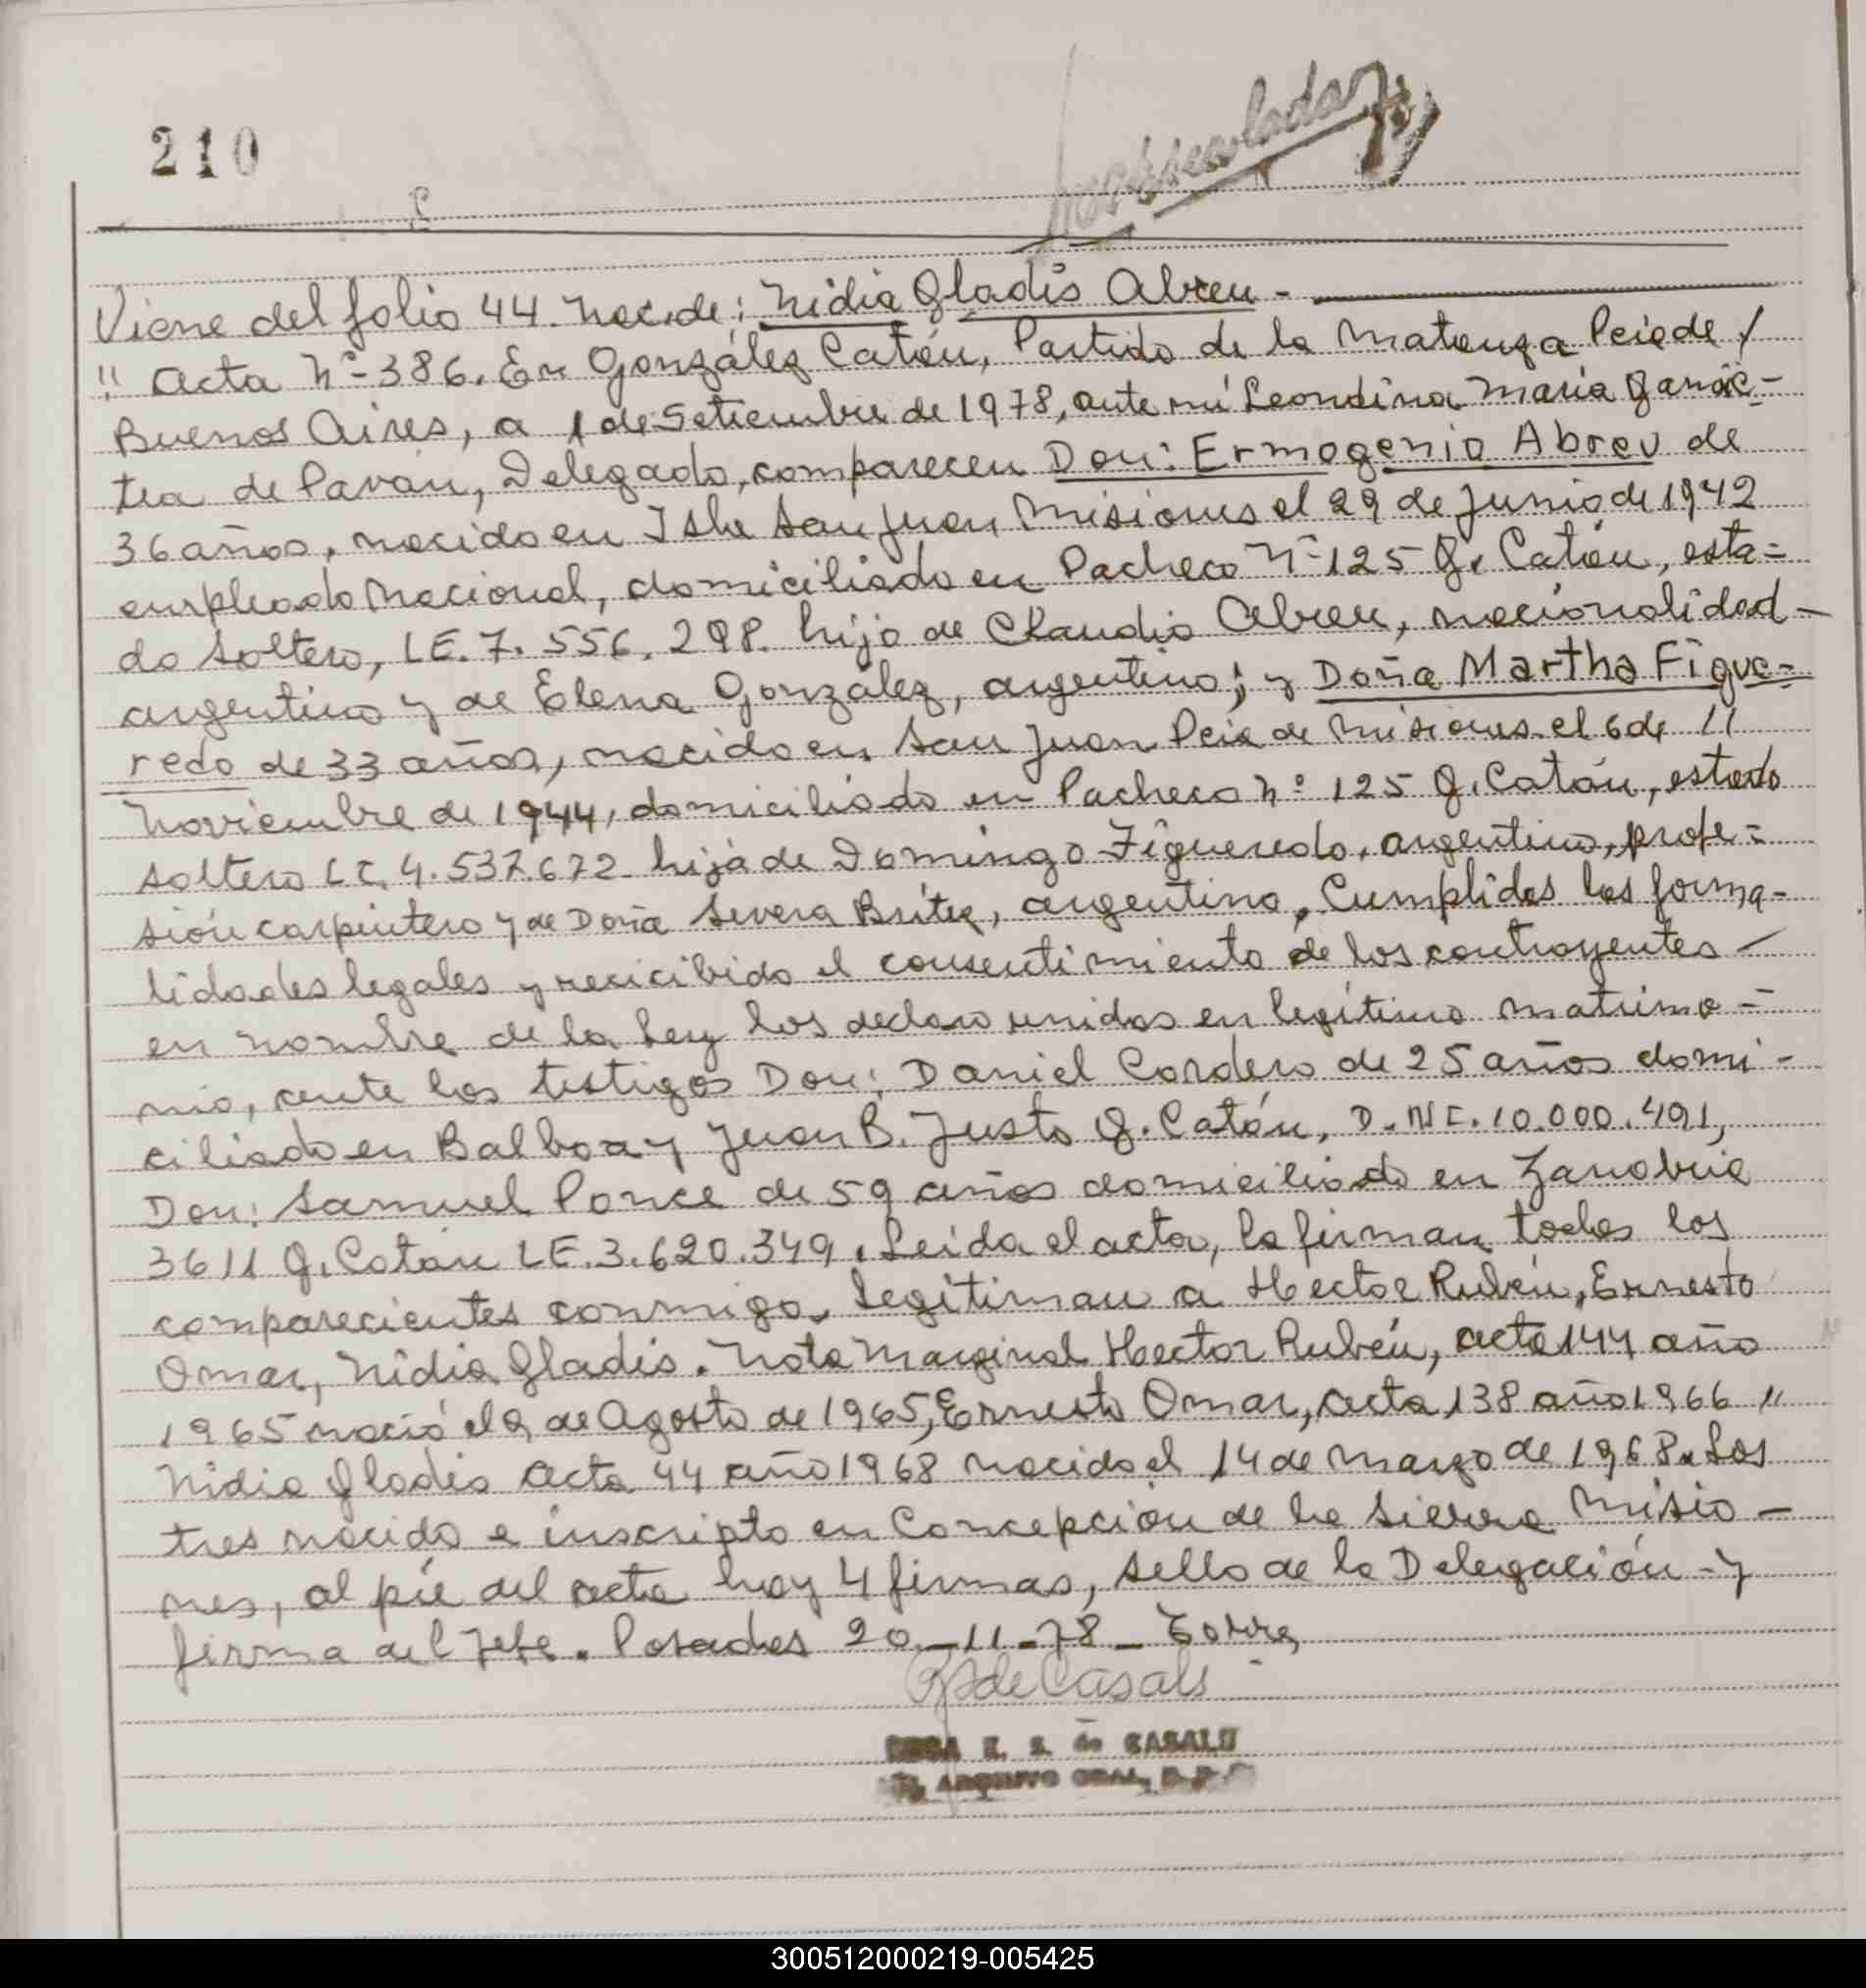 210
Viene del folio 44. Nac. de: Nidia Gladis Abreu -
" Acta Nº 386. En González Catán, Partido de la Matanza Pcia de /
Buenos Aires, a 1 de Setiembre de 1978, ante mí Leondina María
tea de Paván, Delegado, comparecen Don: Ermogenio Abreu de
36 años, nacido en Isla San Juan, Misiones el 29 de Junio de 1942
empleado Nacional, domiciliado en Pacheco Nº 125 G. Catán, esta=
do soltero, LE. 7. 556. 298. hijo de Claudio Abreu, nacionalidad -
argentino y de Elena González, argentino; y Doña Martha Figue=
redo de 33 años, nacido en San Juan Pcia de Misiones el 6 de //
Noviembre de 1944, domiciliado en Pacheco Nº 125 G. Catán, estado
soltero LC. 4.537.672 hija de Domingo Figueredo, argentino, profe=
sión carpintero y de Doña Severa Britez, argentino, Cumplidas las forma-
lidades legales y recicibido el consentimiento de los contrayentes -
en nombre de la Ley los declaro unidos en legítimo matrimo=
nio, ante los testigos Don: Daniel Cordero de 25 años domi-
ciliado en Balboa y Juan B. Justo G. Catán, D. NI. 10.000.491,
Don: Samuel Ponce de 59 años domiciliado en Zanobria
3611 G. Catán LE. 3.620.349. Leída el acta, la firman todos los
comparecientes conmigo. Legitiman a Hector Rubén, Ernesto
Omar, Nidia Gladis. Nota Marginal Hector Rubén, acta 144 año
1965 nació el 9 de Agosto de 1965, Ernesto Omar, acta 138 año 1966 "
Nidia Gladis acta 44 año 1968 nacido el 14 de marzo de 1968. Los
tres nacido e inscripto en Concepción de la Sierra Misio-
nes, al pie del acta hay 4 firmas, sello de la Delegación - y
firma del Jefe. Posadas 20-11-78 - Torres
de Casals
ROSA E. S. de CASALS
ARCHIVO GRAL.
300512000219-005425